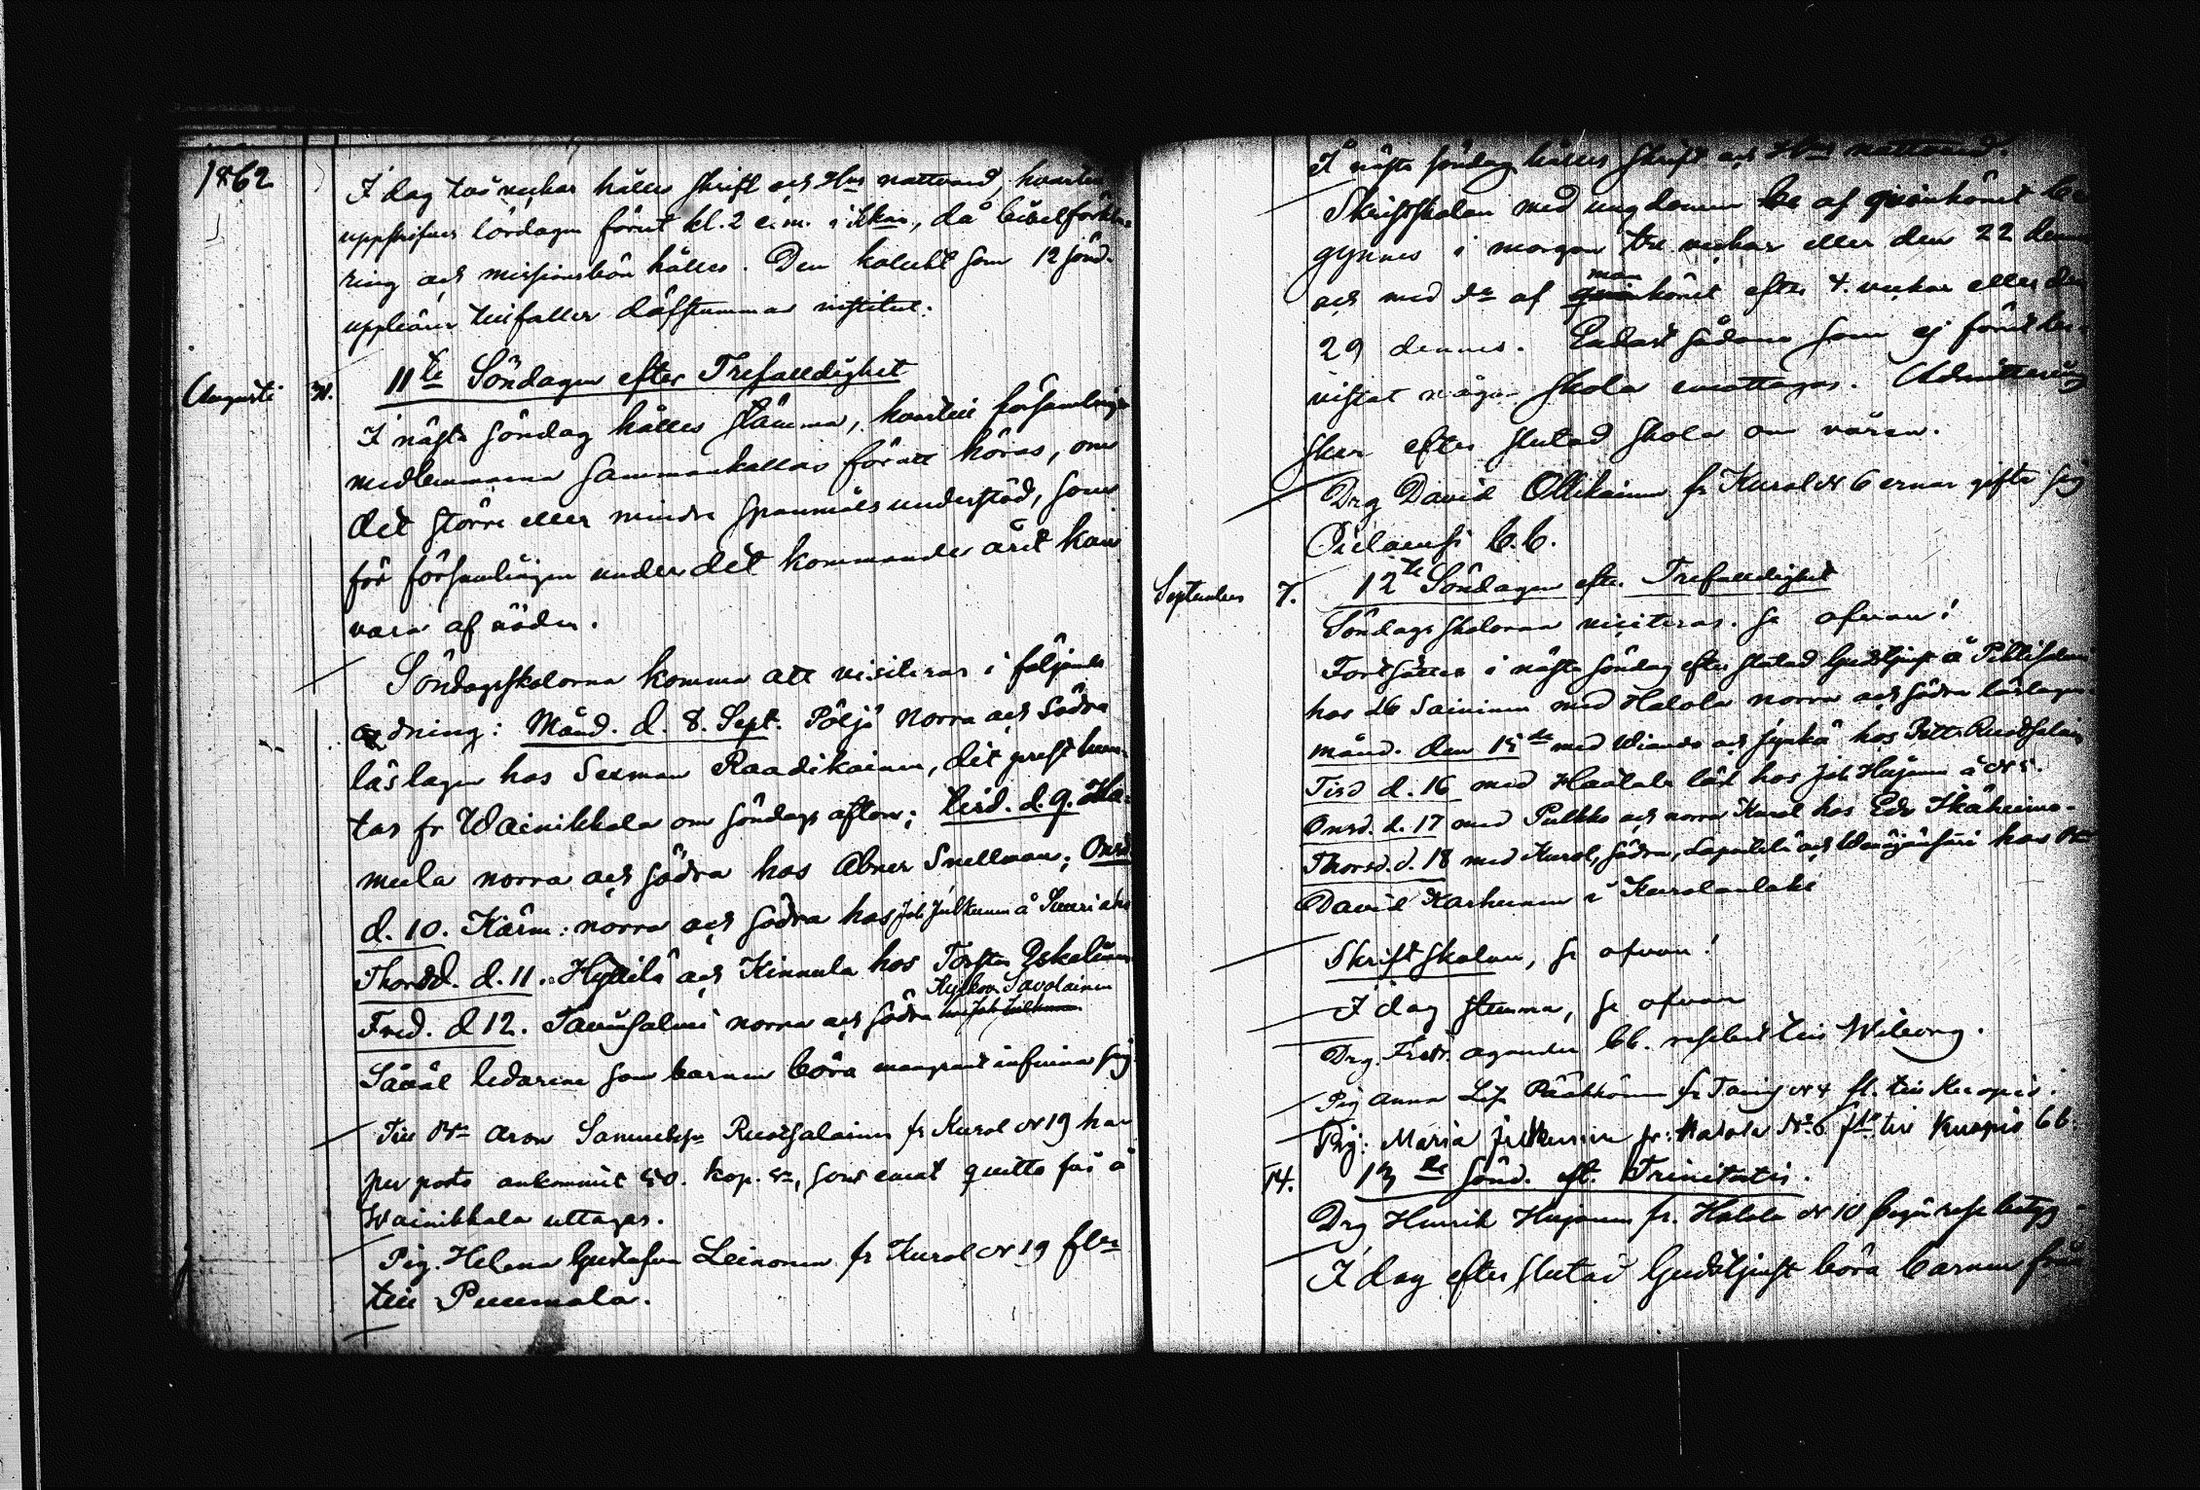 1862
I dag två veckor hålles skrift och H:ns nattvard, hvartill
uppskrifves lördagen förut kl. 2 e.m. i kkan, då bibelförkla-
ring och missionsbön hålles. Den kolekt som 12 sönd.
uppbäres tillfaller döfstummas institut.
Augusti 31. 11te Söndagen efter Trefaldighet
I nästa söndag hålles stämma, hvartill församlings
medlemmarna sammankallas för att höras, om
det större eller mindre spanmåls understöd, som
för församlingen under det kommande året kan
vara af nöden.
Söndagsskolorna komma att visiteras i följande
ordning: Månd. d. 8. Sept. Pöljö norra och södra
läslagen hos Sexman Raadikainen, dit prest hem-
tas fr Wainikkala om söndags afton; Tisd. d. 9. Ha-
mula norra och södra hos Abner Snellman; Onsd
d. 10. Kärm: norra och södra hos Joh Julkunen å
Thorsd. d. 11. Hyttilä och Kinnula hos Torsten Yskelinen
Kyrkov. Savolainen
Fred. d 12. norra och södra
Såväl ledarene som barnen böra mangrant infinna sig.
Till Aron Samuelss. Ruotsalainen fr Kurol N 19 har
per posto ankommit 50. kop. Sr, som emot quitto fås å
Wainikkala uttagas.
Pig. Helena Gustafsn Leinonen fr Kurol N 19
till Puumala.
I nästa söndag hålles skrift och H:ns nattvard.
Skriftskolan med ungdomen af qvinkönet be
gynnes i morgon tre veckor eller den 22 dennes
man
och med do af qvinkönet efter 4. veckor eller den
29 dennes. Endast sådana som ej förut be-
vistat någon skola emottagas. Admittering
sker efter slutad skola om våren.
Drg David Ollikainen fr Kurol N 6 ernar gifta sig
Pielavesi b.b.
September 7. 12te Söndagen efter Trefaldighet
Söndags skolorna visiteras. Se ofvan!
Fortsättes i nästa söndag efter slutad Gudstjenst å
hos Saininen med Halola norra och södra läslagen
månd. den 15de med och hos Pett. Ruotsalain
Tisd d. 16 med läsl hos Joh Hujanen å N 5.
Onsd. d. 17 med Pulkko och norra Kurol hos Edv
Thorsd. d. 18 med Kurol, södra, och hos
David Karhunen i Kurolanlaks
Skriftskolan, se ofvan!
I dag stemma, se ofvan
Drg. Fredr. Agander bb. till Wiborg.
Pig Anna Lis Pääkkönen fr N 4 fl. till Kuopio.
Pig: Maria Julkunen fr: Halola N:o 6 till Kuopio bb.
14. 13de sönd. eft. Trinitatis.
Drg Henrik Hujanen fr. Halola N 10 begär resebetyg.
I dag efter slutad Gudstjenst böra barnen från